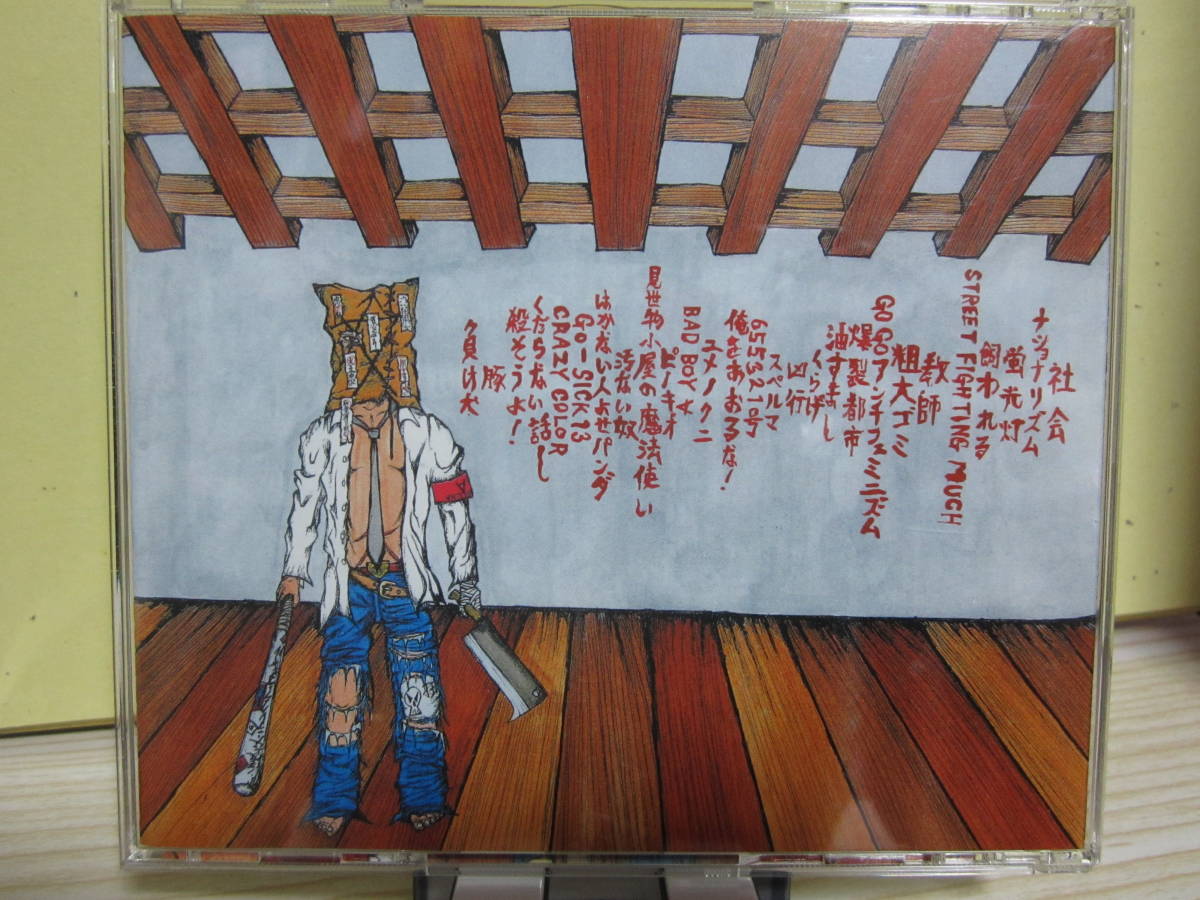 社会
ナショナリズム
蛍光灯
飼われる
STREET FIGHTING MUCH
教師
粗大ゴミ
GO GO アンチフェミニズム
爆裂都市
油すまし
くらげ
凶行
スペルマ
655321号
俺をあおるな!
ユメノクニ
BAD BOY
ピーキオ
見世物小屋の魔法使い
汚ない奴
はかない人よせパンダ
GO-SICK13
CRAZY COLOR
くだらない話し
殺そうよ!
豚
負け犬